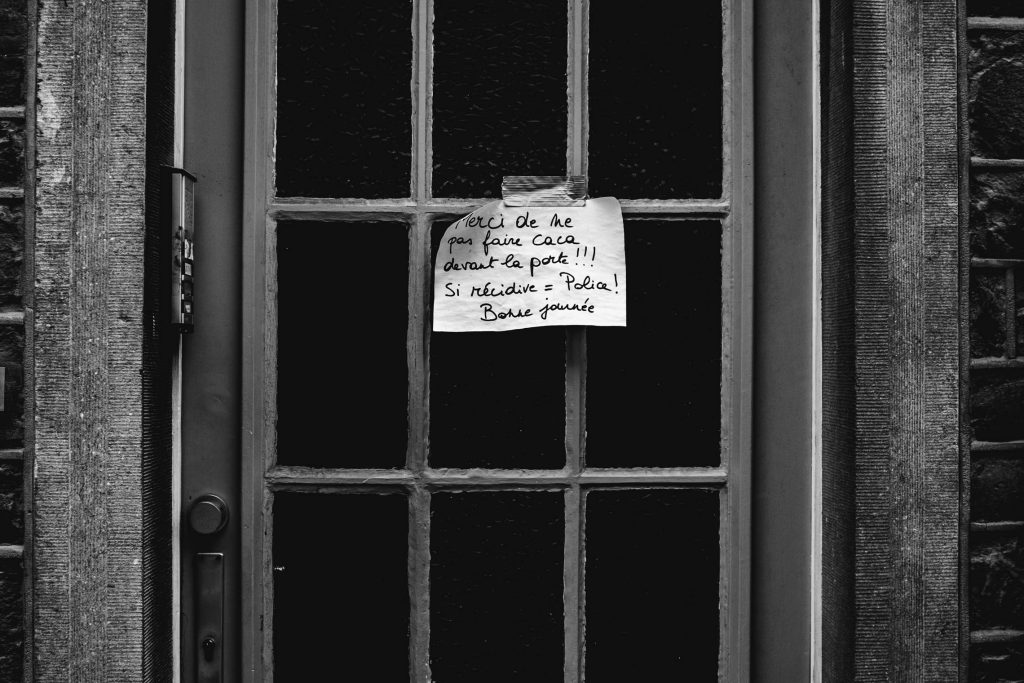 Merci de ne
pas faire caca
devant la porte !!!
Si récidive = Police !
Bonne journée